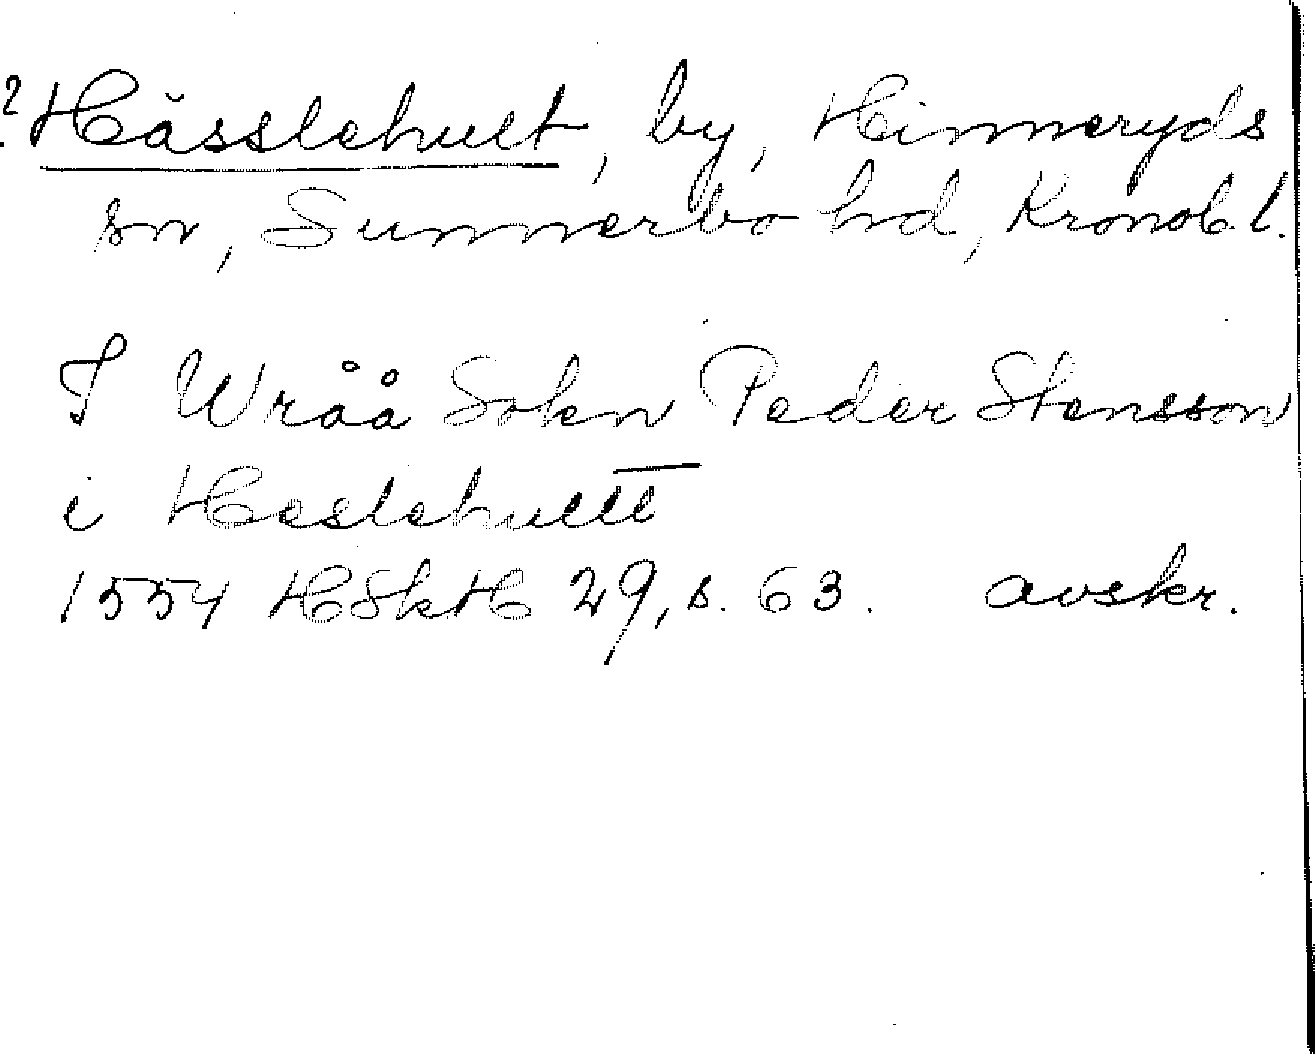 ? Hässlehult, by, Hinneryds
sn, Sunnerbo hd, Kronob. l.
I Wråå Sokn Peder Stensson
i Heslehultt
1554 HSkH 29, s. 63. avskr.